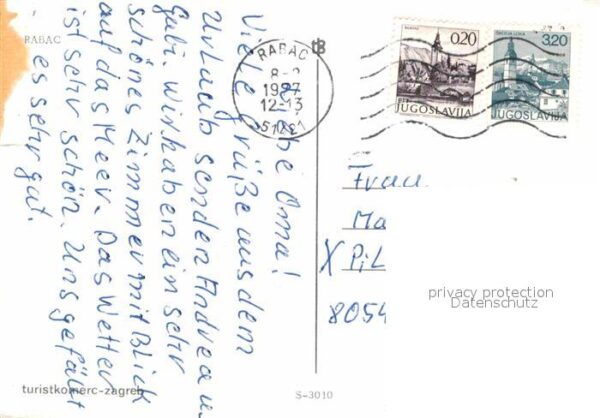 RABAC
Liebe Oma!
Viele Grüße aus dem
Urlaub senden Andrea u.
Gabi. Wir haben ein sehr
schönes Zimmer mit Blick
auf das Meer. Das Wetter
ist sehr schön. Uns gefällt
es sehr gut.
turistkomerc-zagreb
S-3010
tB
RABAC
12-13
51221
0.20
JUGOSLAVIJA
3.20
JUGOSLAVIJA
Frau
Ma
X Pil
8054
privacy protection
Datenschutz